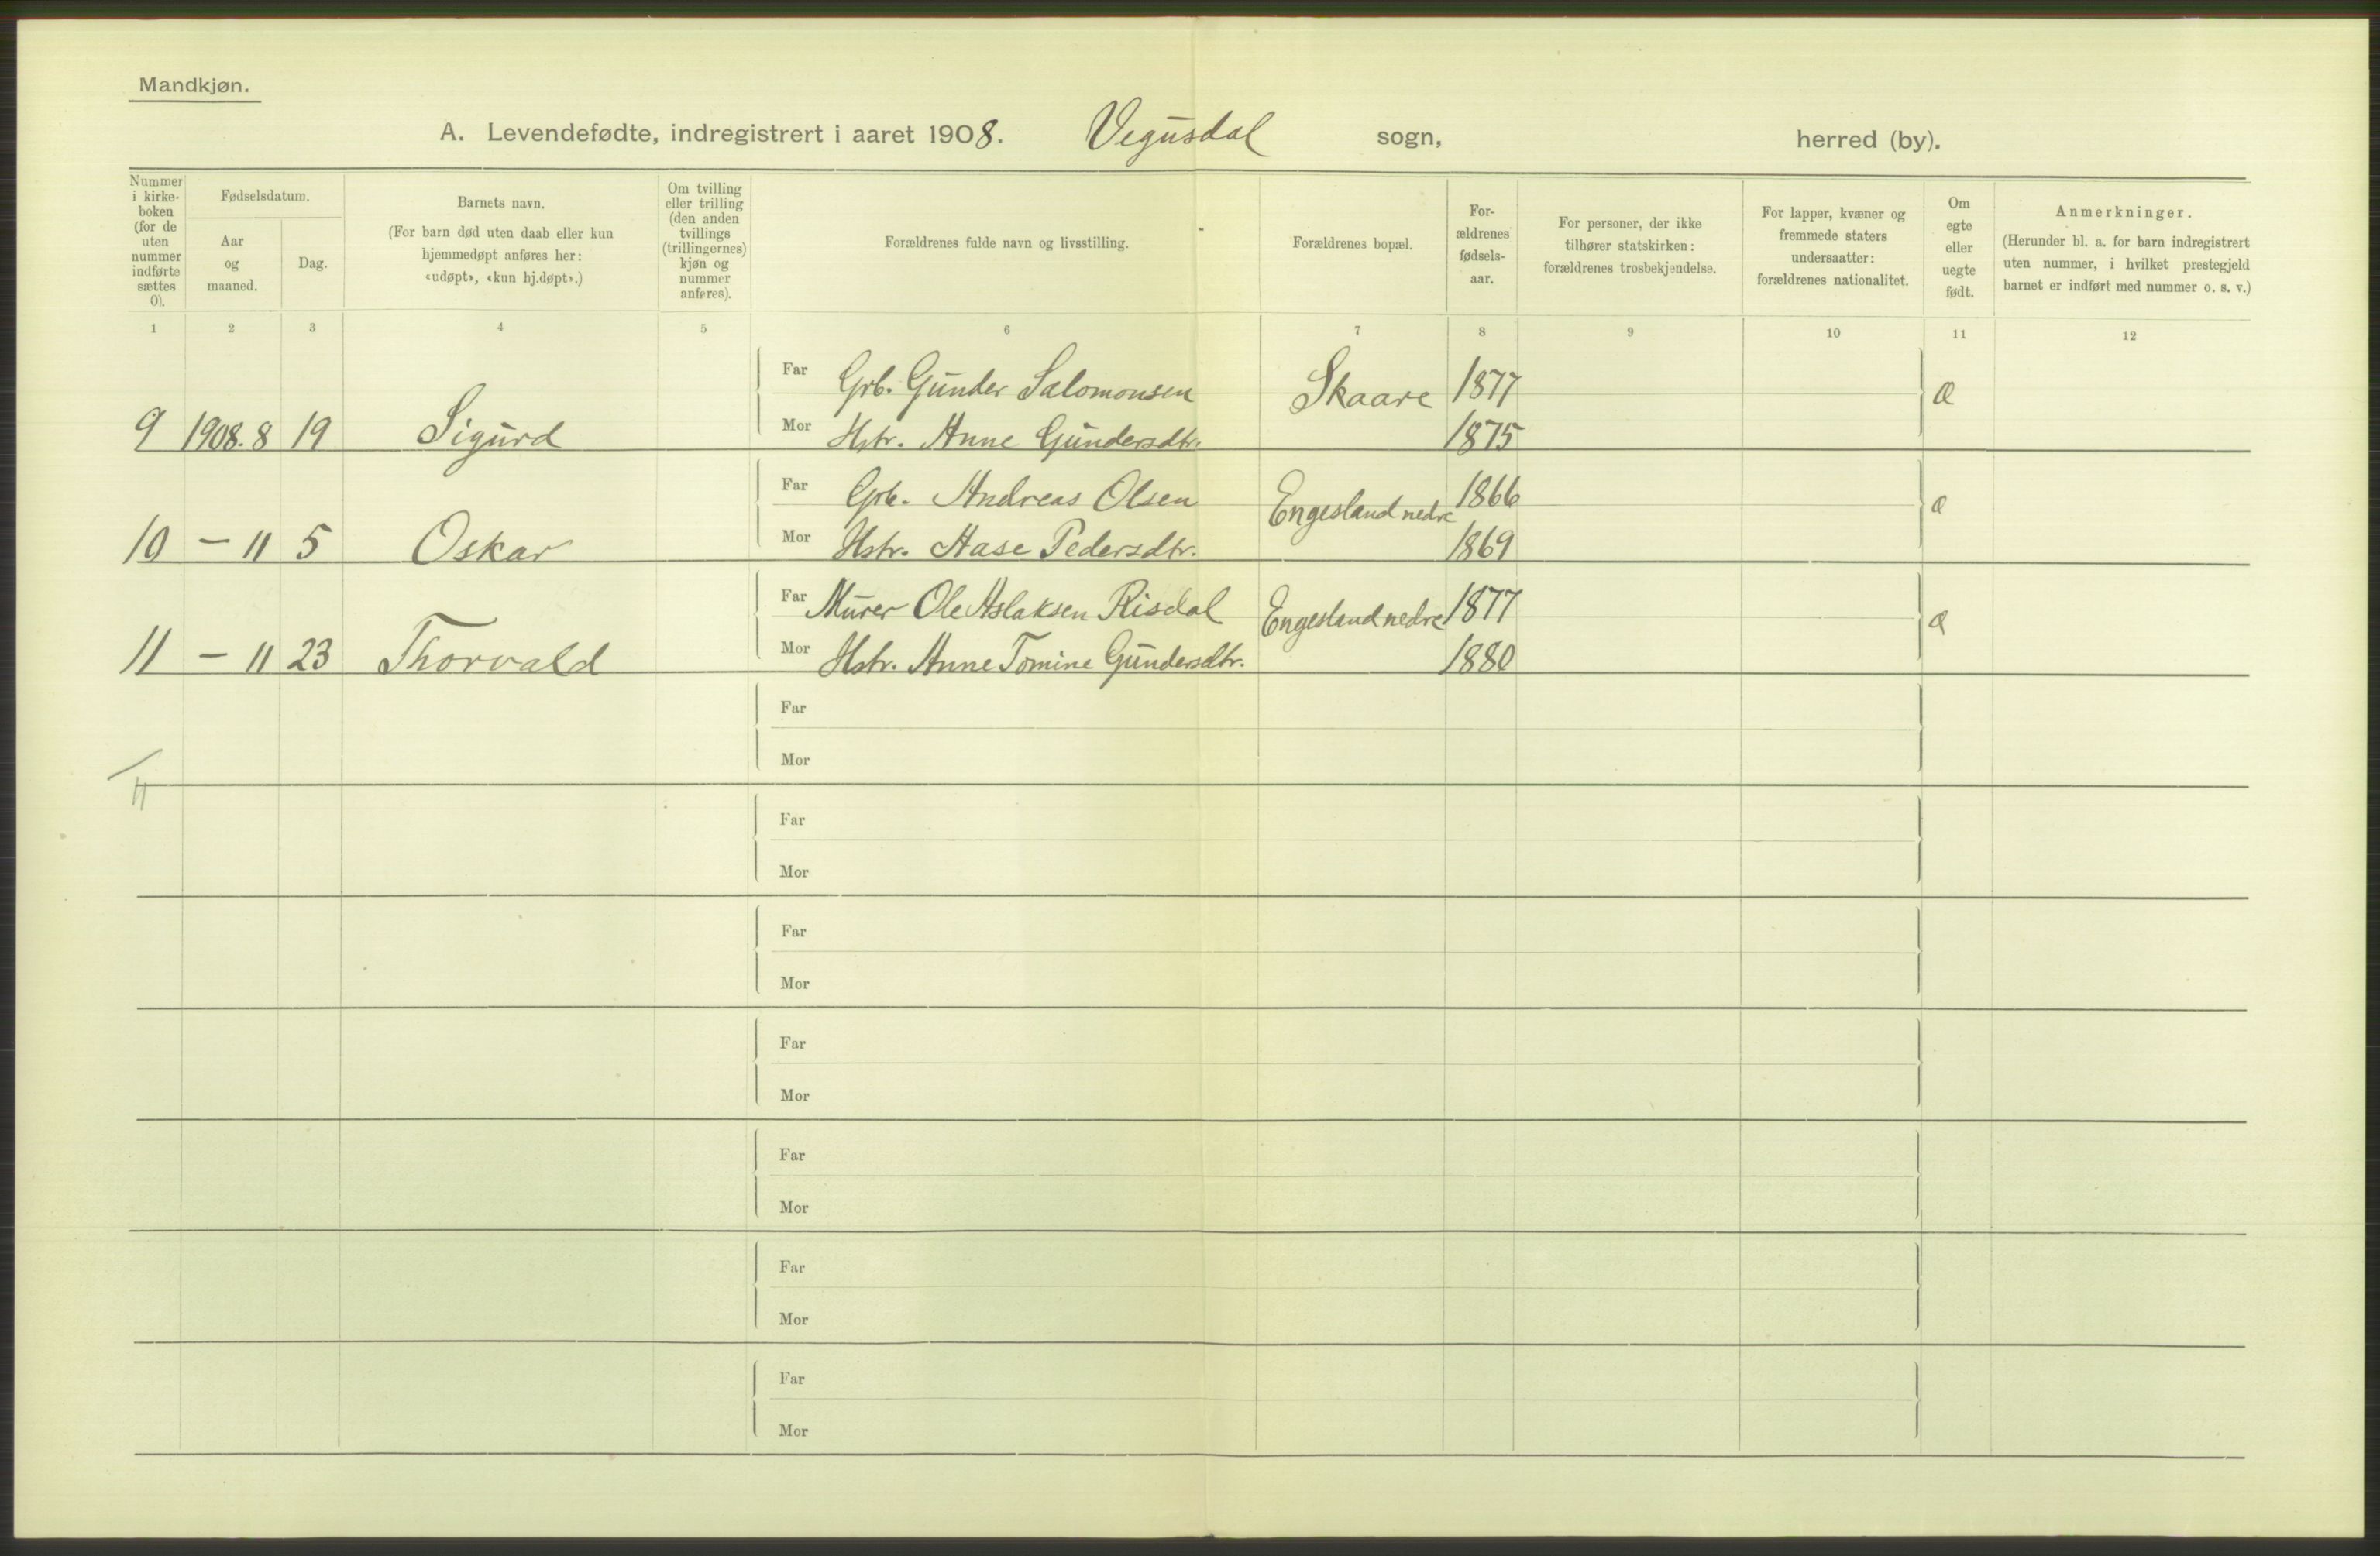 Mandkjøn.
A. Levendefødte, indregistrert i aaret 1908. Vegusdal sogn, herred (by).
Nummer i kirke-boken (for de uten nummer indførte sættes 0).
Fødselsdatum.
Aar og maaned.
Dag.
Barnets navn.
(For barn død uten daab eller kun hjemmedøpt anføres her: «udøpt», «kun hj.døpt».)
Om tvilling eller trilling (den anden tvillings (trillingernes) kjøn og nummer anføres).
Forældrenes fulde navn og livsstilling.
Forældrenes bopæl.
For-ældrenes fødsels-aar.
For personer, der ikke tilhører statskirken: forældrenes trosbekjendelse.
For lapper, kvæner og fremmede staters undersaatter: forældrenes nationalitet.
Om egte eller uegte født.
Anmerkninger.
(Herunder bl. a. for barn indregistrert uten nummer, i hvilket prestegjeld barnet er indført med nummer o. s. v.)
1 2 3 4 5 6 7 8 9 10 11 12
Far Grb. Gunder Salomonsen Skaare 1877 æ
9 1908. 8 19 Sigurd Mor Hstr. Anne Gundersdtr. 1875
Far Grb. Andreas Olsen Engesland nedre 1866 æ
10 – 11 5 Oskar Mor Hstr. Aase Pedersdtr. 1869
Far Murer Ole Aslaksen Risdal Engesland nedre 1877 æ
11 – 11 23 Thorvald Mor Hstr. Anne Tomine Gundersdtr. 1880
Far
Mor
11
Far
Mor
Far
Mor
Far
Mor
Far
Mor
Far
Mor
Far
Mor